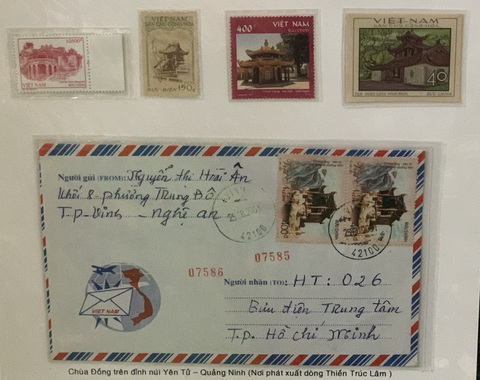 VIỆT NAM
150đ
VIỆT NAM
400
VIỆT-NAM
DÂN CHỦ CỘNG HÒA
40
Người gửi (FROM): Nguyễn Thị Hoài Ân
Khối 8 - phường Trung Đô
T.p Vinh - Nghệ an
42100
42100
07586
07585
VIET NAM
Người nhân (TO): HT: 026
Bưu điện Trung tâm
T.p. Hồ Chí Minh
Chùa Đồng trên đỉnh núi Yên Tử – Quảng Ninh (Nơi phát xuất dòng Thiền Trúc Lâm )